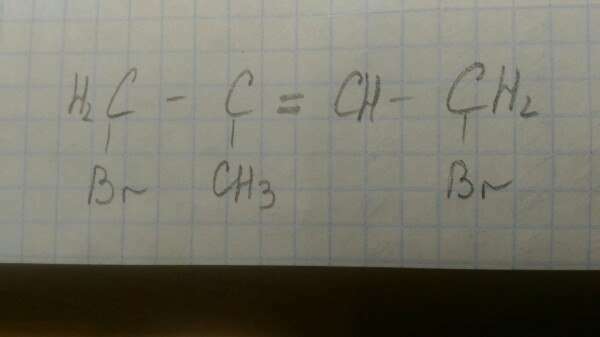 H₂C - C = CH - CH₂
Br CH₃ Br